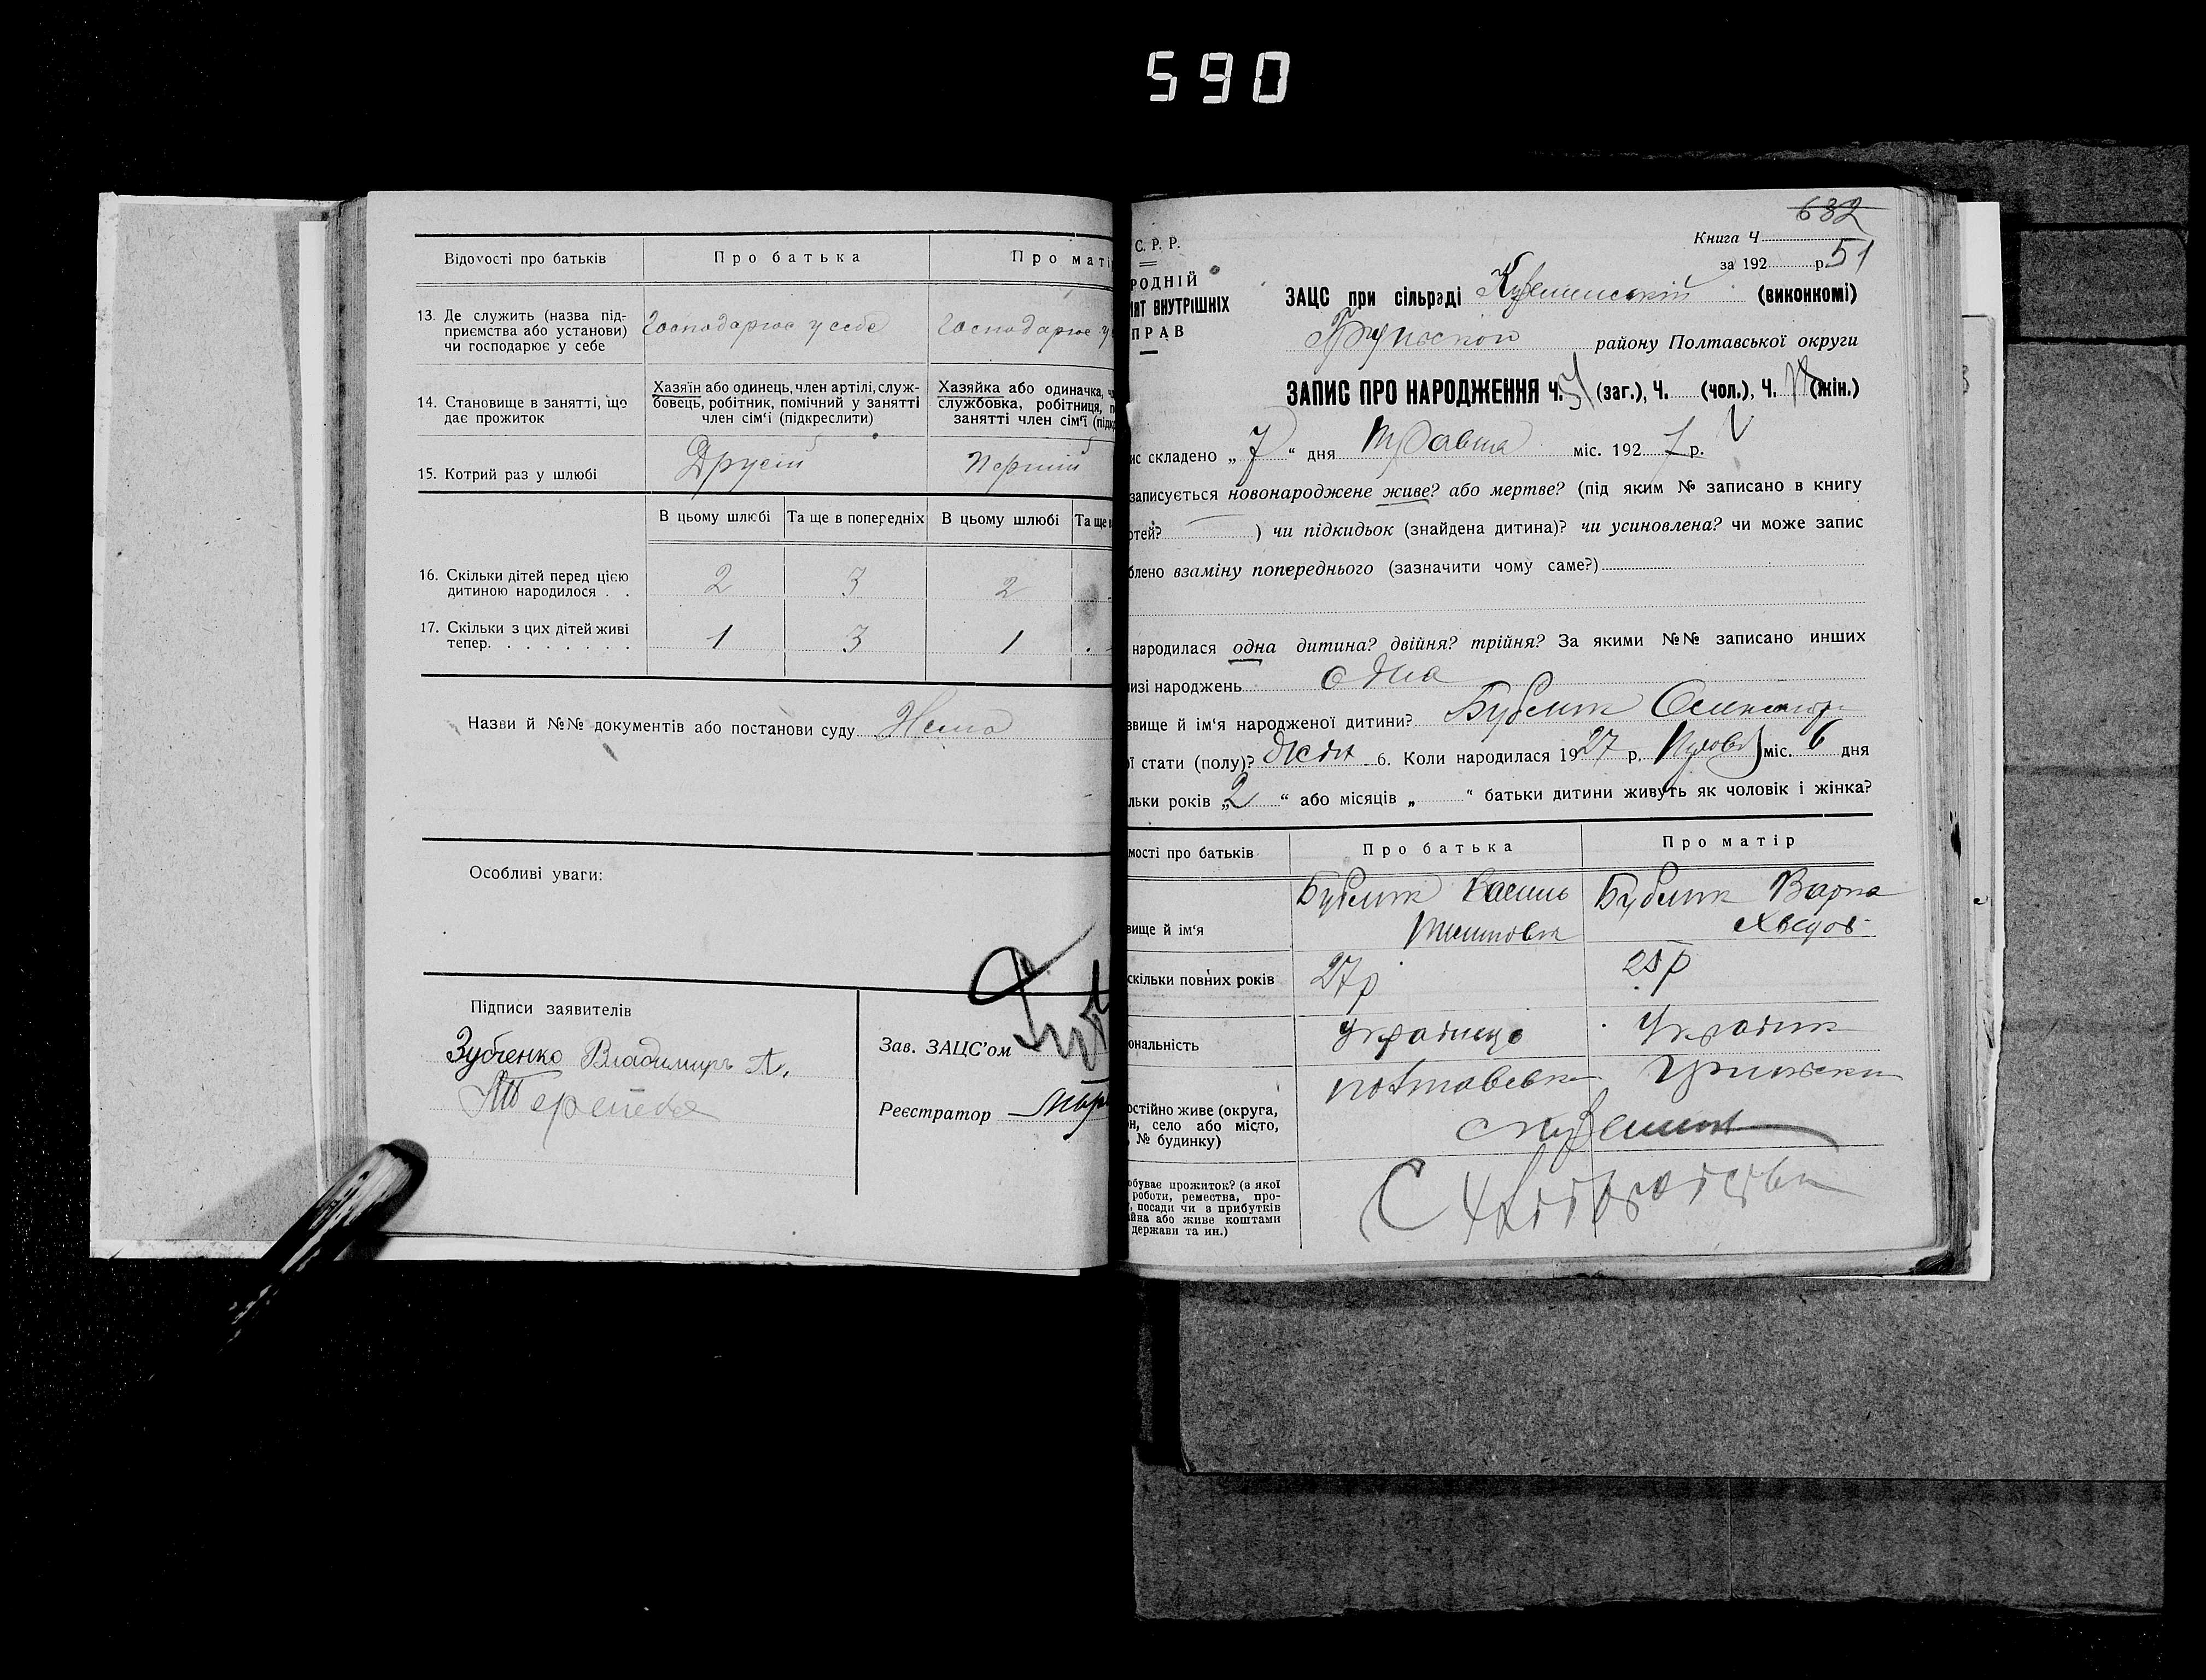 590
Відомості про батьків
Про батька
Про матір
13. Де служить (назва під-
приємства або установи)
чи господарює у себе
Господарює у себе
Господарює у
14. Становище в занятті, що
дає прожиток
Хазяїн або одинець, член артілі, служ-
бовець, робітник, помічний у занятті
член сім‘ї (підкреслити)
Хазяйка або одиначка, ч
службовка, робітниця, п
занятті член сім‘ї (підк
15. Котрий раз у шлюбі
Другій
Перший
В цьому шлюбі
Та ще в попередніх
В цьому шлюбі
Та ще в
16. Скільки дітей перед цією
дитиною народилося . .
2
3
2
17. Скільки з цих дітей живі
тепер. . . . . . . .
1
3
1
Назви й №№ документів або постанови суду Нема
Особливі уваги:
Підписи заявителів
Зубченко Владимиръ А.
Зав. ЗАЦС’ом
Реєстратор
632
С. Р. Р.
Книга Ч
за 192 р. 51
РОДНІЙ
ІЯТ ВНУТРІШНІХ
ПРАВ
ЗАЦС при сільраді (виконкомі)
району Полтавської округи
ЗАПИС ПРО НАРОДЖЕННЯ Ч. 51 (заг.), Ч. (чол.), Ч. (жін.)
ис складено „7“ дня Травня міс. 1927 р.
записується новонароджене живе? або мертве? (під яким № записано в книгу
ртей? ) чи підкидьок (знайдена дитина)? чи усиновлена? чи може запис
блено взаміну попереднього (зазначити чому саме?)
народилася одна дитина? двійня? трійня? За якими №№ записано инших
изі народжень одна
звище й ім‘я народженої дитини? Бублик
ї стати (полу)? жін 6. Коли народилася 1927 р. міс. 6 дня
льки років „2“ або місяців „ “ батьки дитини живуть як чоловік і жінка?
мості про батьків
Про батька
Про матір
вище й ім‘я
Бублик Василь
Бублик Варка
Хведов
скільки повних років
27 р
25 р
ональність
Українець
Українк
остійно живе (округа,
н, село або місто,
№ будинку)
обуває прожиток? (з якої
роботи, ремества, про-
, посади чи з прибутків
йна або живе коштами
держави та ин.)
С хліборобства